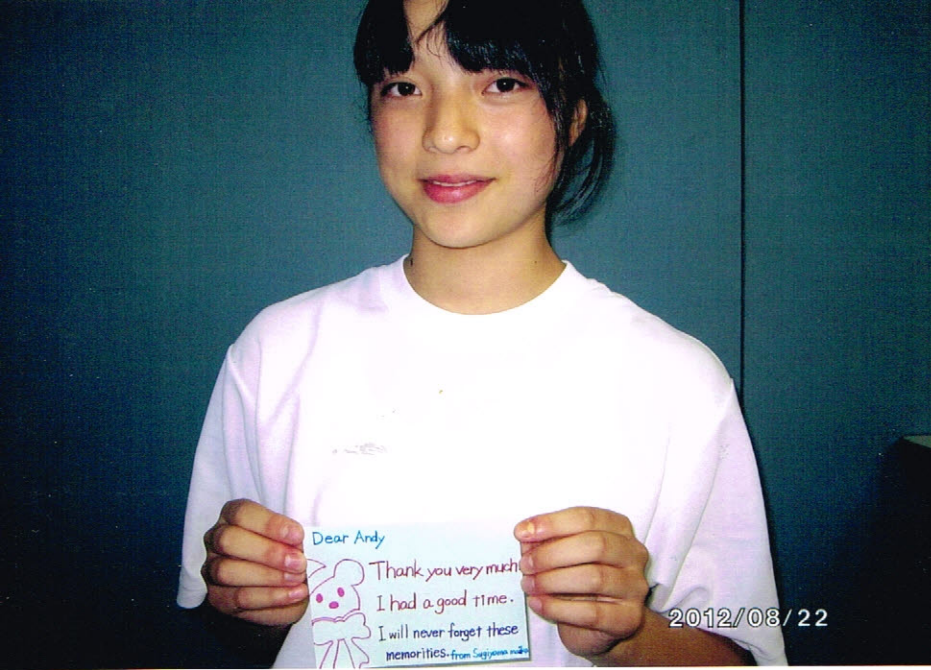 Dear Andy
Thank you very much
I had a good time.
I will never forget these
memorities. from Sugiyama
2012/08/22